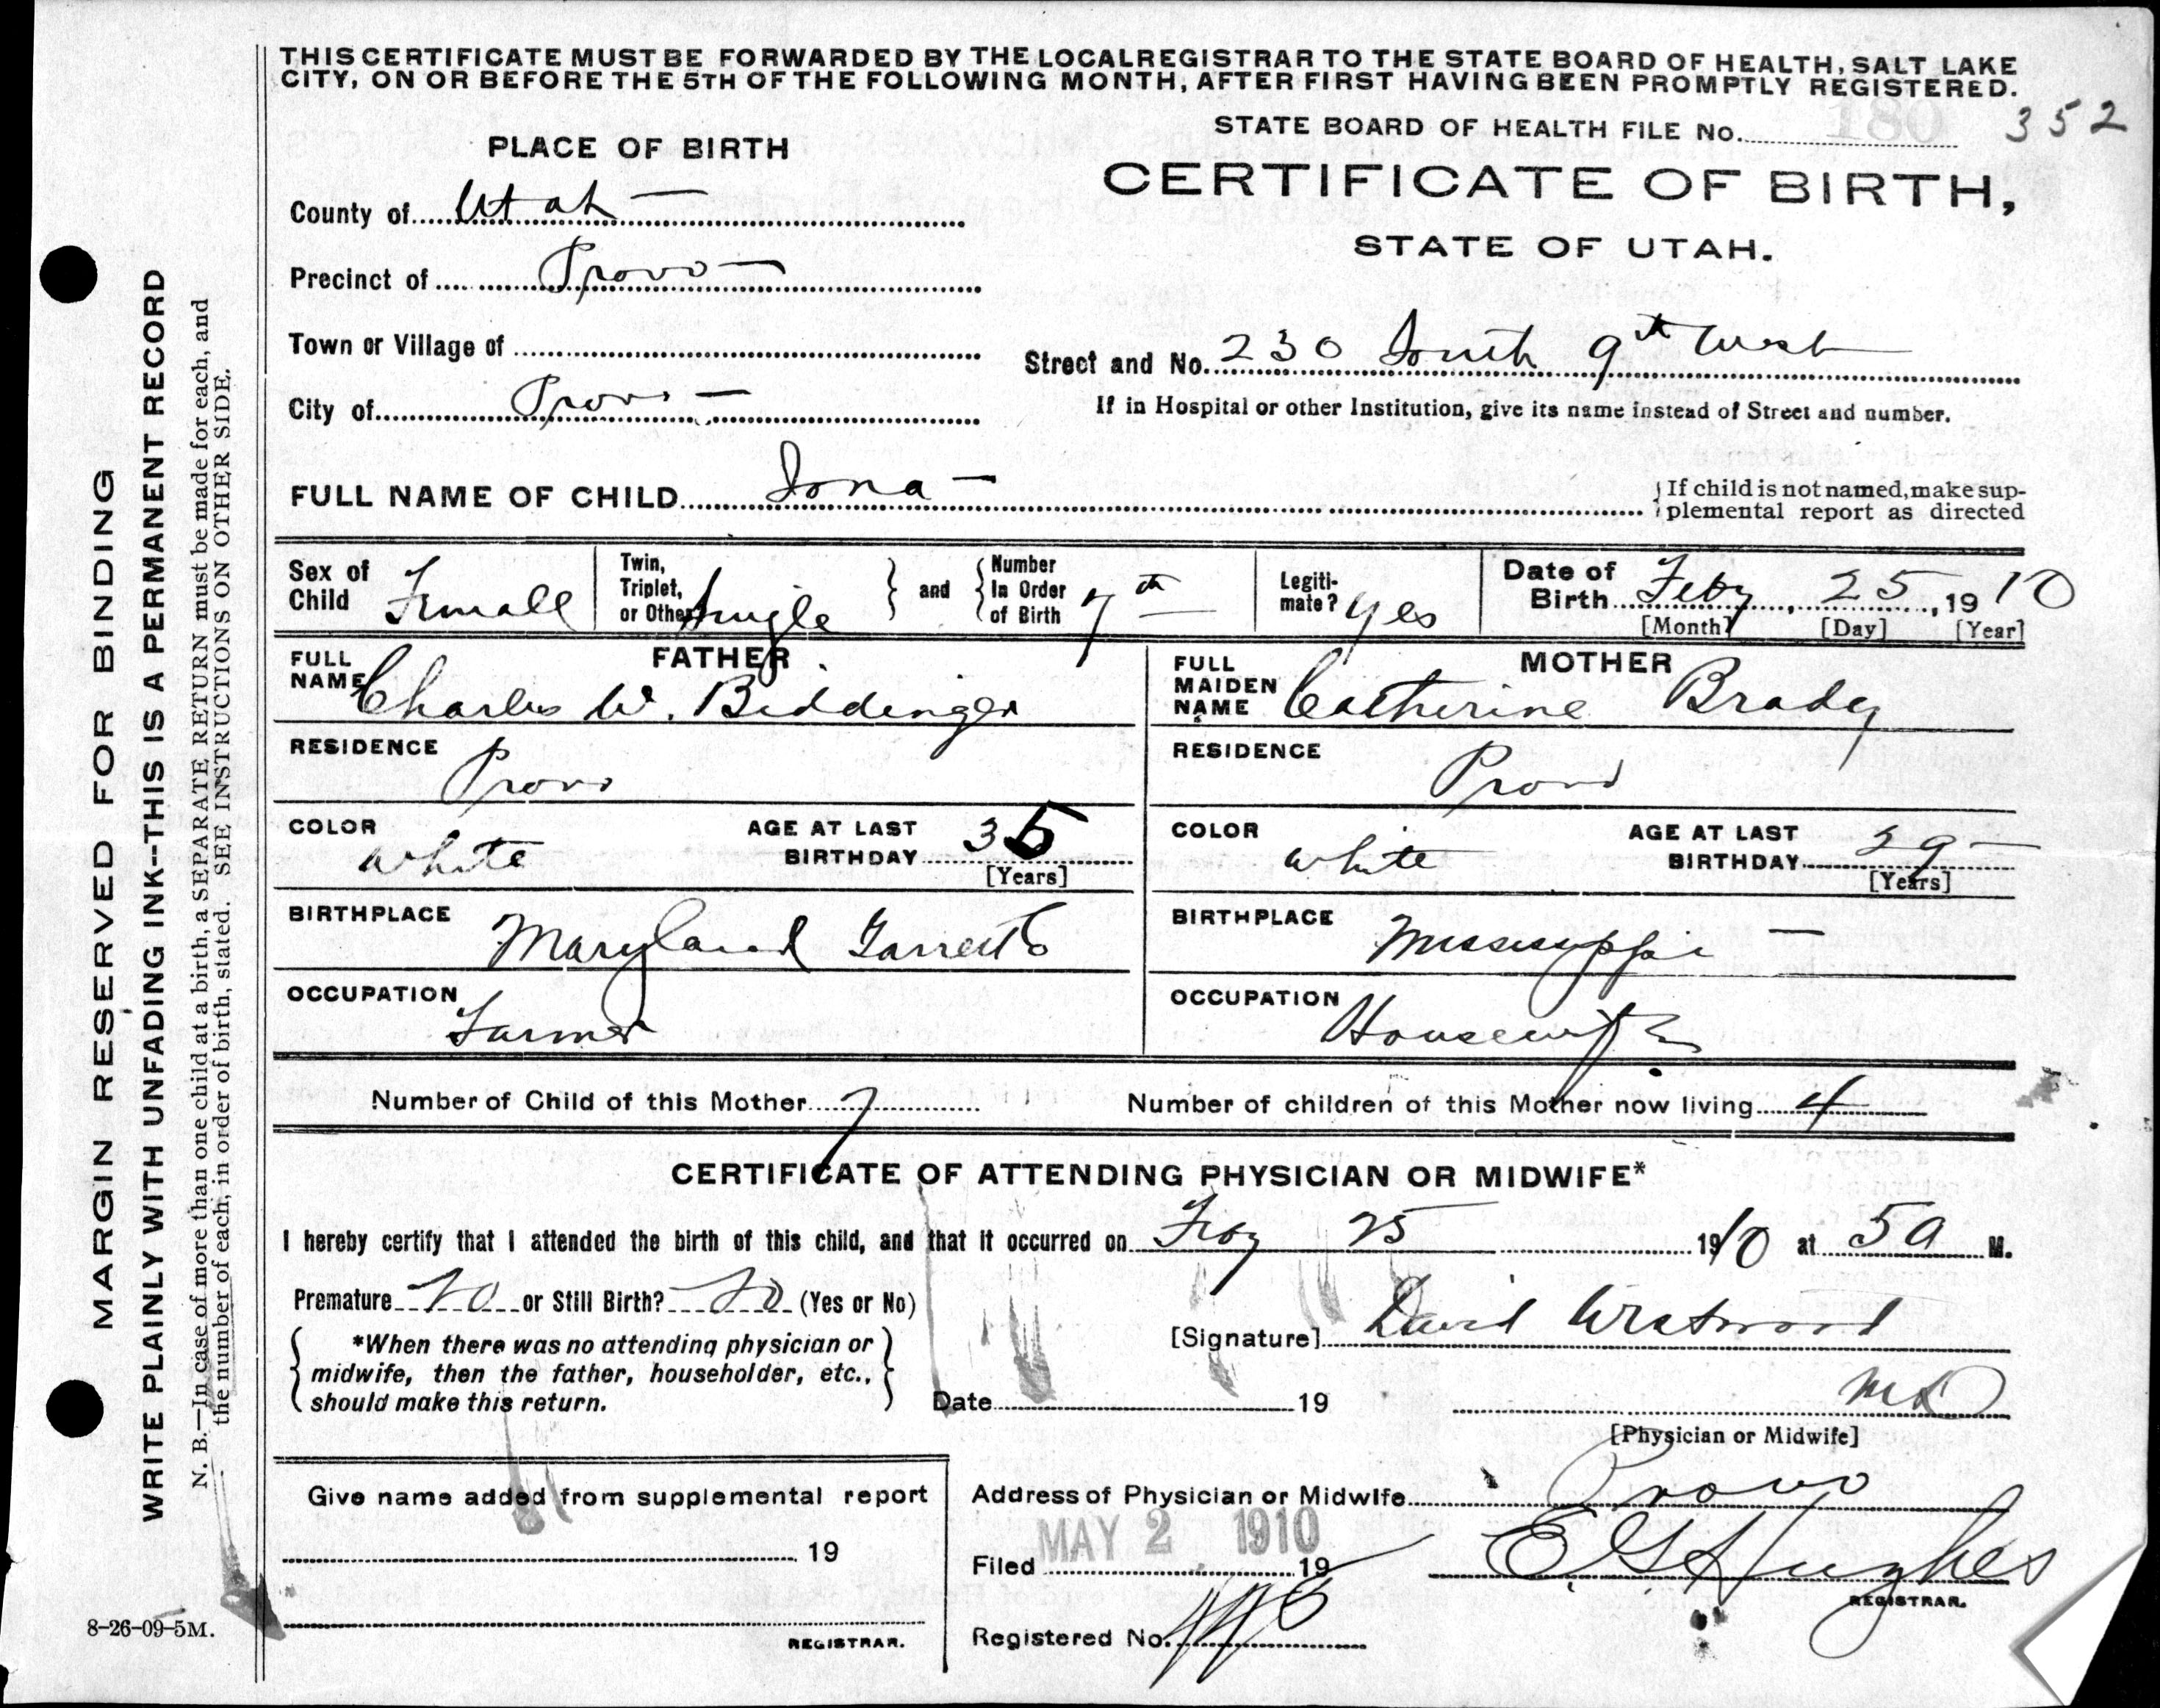 THIS CERTIFICATE MUST BE FORWARDED BY THE LOCAL REGISTRAR TO THE STATE BOARD OF HEALTH, SALT LAKE
CITY, ON OR BEFORE THE 5TH OF THE FOLLOWING MONTH, AFTER FIRST HAVING BEEN PROMPTLY REGISTERED.
STATE BOARD OF HEALTH FILE No. 180 352
PLACE OF BIRTH
CERTIFICATE OF BIRTH,
STATE OF UTAH.
County of Utah
Precinct of Provo
Town or Village of
Street and No. 230 South 9th West
City of Provo
If in Hospital or other Institution, give its name instead of Street and number.
FULL NAME OF CHILD Iona
If child is not named, make sup-
plemental report as directed
Sex of Child Female
Twin, Triplet, or Other Single and Number In Order of Birth 7th
Legiti-mate? Yes
Date of Birth Feby 25, 1910
[Month] [Day] [Year]
FATHER
FULL NAME Charles W. Biddinger
RESIDENCE Provo
COLOR white AGE AT LAST BIRTHDAY 35
[Years]
BIRTHPLACE Maryland
OCCUPATION Farmer
MOTHER
FULL MAIDEN NAME Catherine Brady
RESIDENCE Provo
COLOR white AGE AT LAST BIRTHDAY 29
[Years]
BIRTHPLACE Mississippi
OCCUPATION Housewife
Number of Child of this Mother 7 Number of children of this Mother now living 4
CERTIFICATE OF ATTENDING PHYSICIAN OR MIDWIFE*
I hereby certify that I attended the birth of this child, and that it occurred on Feby 25 1910 at 5 a M.
Premature No or Still Birth? No (Yes or No)
*When there was no attending physician or
midwife, then the father, householder, etc.,
should make this return.
[Signature] David Westwood
Date 19 MD
[Physician or Midwife]
Give name added from supplemental report
19
REGISTRAR.
Address of Physician or Midwife Provo
Filed MAY 2 1910 19 E. G. Hughes
REGISTRAR.
Registered No.
8-26-09-5M.
MARGIN RESERVED FOR BINDING
WRITE PLAINLY WITH UNFADING INK--THIS IS A PERMANENT RECORD
N. B.—In case of more than one child at a birth, a SEPARATE RETURN must be made for each, and
the number of each, in order of birth, stated. SEE INSTRUCTIONS ON OTHER SIDE.